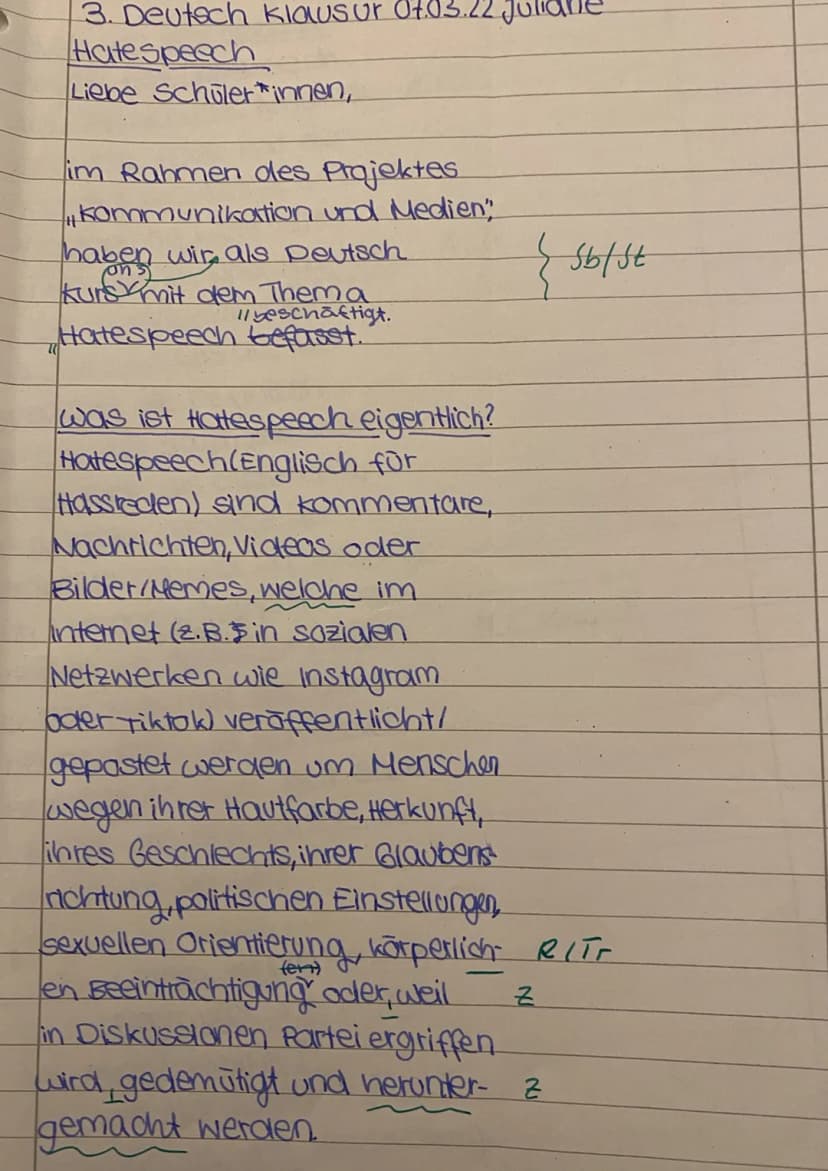 3. Deutsch Klausur 07.03.22 Juliane
Hatespeech
Liebe Schüler*innen,
im Rahmen des Projektes
„Kommunikation und Medien",
haben wir als Deutsch
uns
kurs mit dem Thema
Sb/St
"beschäftigt.
„Hatespeech befasst.
Was ist Hatespeech eigentlich?
Hatespeech (Englisch für
Hassreden) sind Kommentare,
Nachrichten, Videos oder
Bilder/Memes, welche im
Internet (z.B. in sozialen
Netzwerken wie Instagram
oder TikTok) veröffentlicht/
gepostet werden um Menschen
wegen ihrer Hautfarbe, Herkunft,
ihres Geschlechts, ihrer Glaubens-
richtung, politischen Einstellungen,
sexuellen Orientierung, körperlich- R/Tr
(en)
en Beeinträchtigung oder, weil Z
in Diskussionen Partei ergriffen
wird, gedemütigt und herunter- Z
gemacht werden.